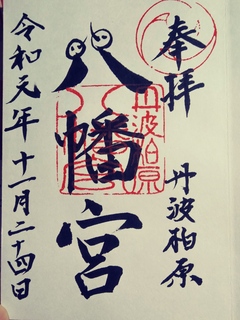 奉拝
丹波柏原
八幡宮
丹波柏原
令和元年十一月二十四日